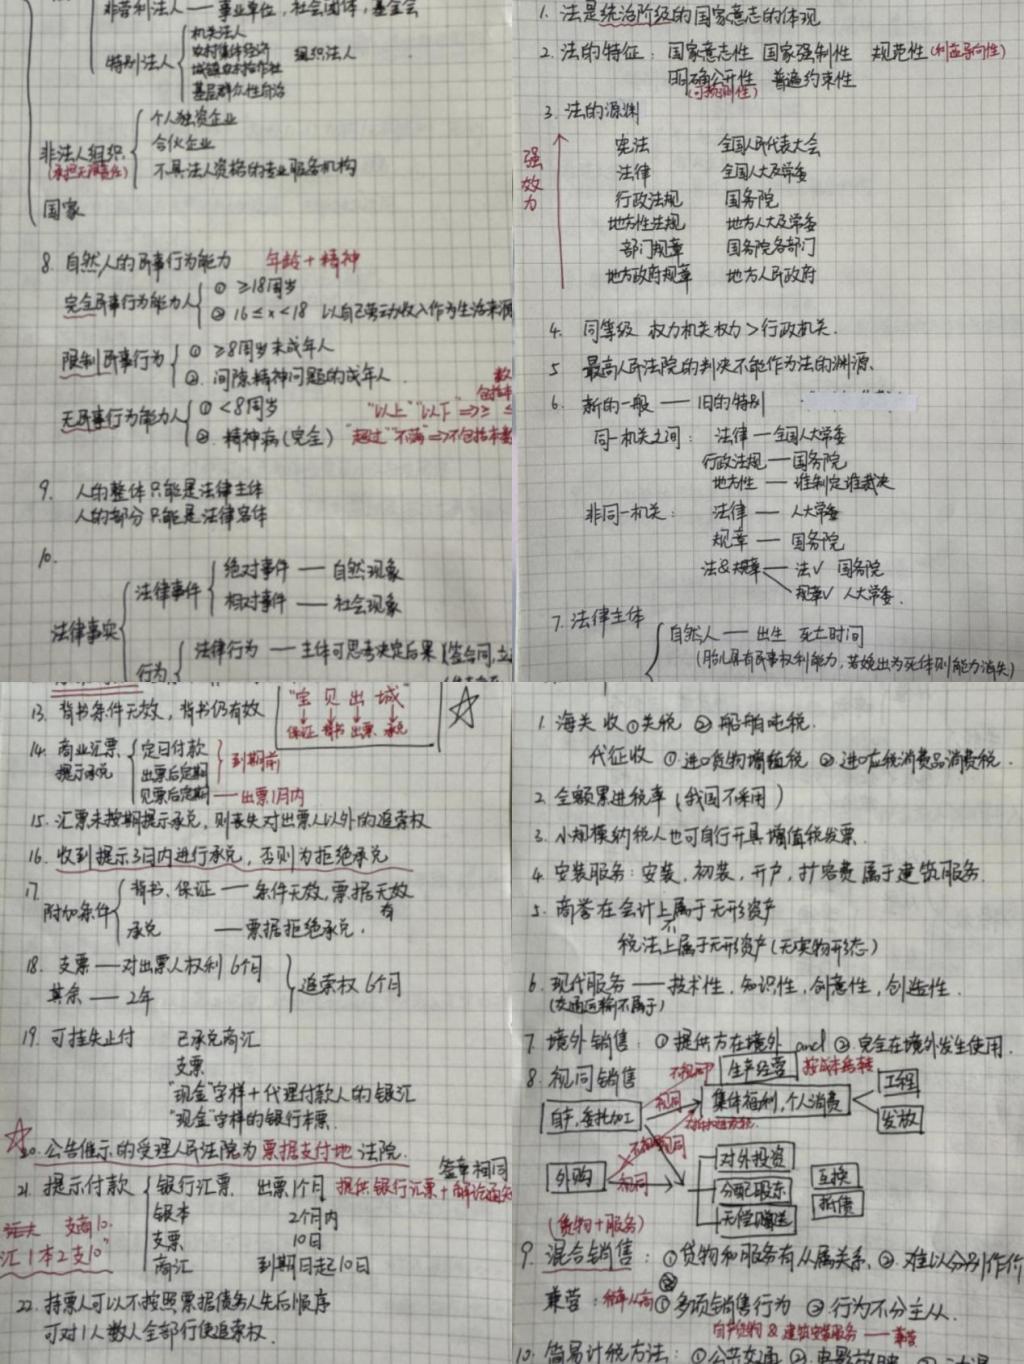 非营利法人 — 事业单位，社会团体，基金会
特别法人
机关法人
农村集体经济
城镇农村合作社
基层群众性自治
组织法人
非法人组织
(承担无限责任)
个人独资企业
合伙企业
不具法人资格的专业服务机构
国家
8. 自然人的民事行为能力 年龄＋精神
完全民事行为能力人
① ≥18周岁
② 16≤x<18 以自己劳动收入作为生活来源
限制民事行为
① ≥8周岁未成年人
②. 间隙精神问题的成年人
无民事行为能力人
① <8周岁
②. 精神病(完全)
"以上""以下"=>≥ ≤
"超过""不满"=>不包括本数
9. 人的整体只能是法律主体
人的部分只能是法律客体
10.
法律事实
法律事件
绝对事件 — 自然现象
相对事件 — 社会现象
行为
法律行为 — 主体可思考决定后果(签合同,立
1. 法是统治阶级的国家意志的体现
2. 法的特征：国家意志性 国家强制性 规范性(利益导向性)
明确公开性 普遍约束性
(可预测性)
3. 法的渊源
效力强
宪法 全国人民代表大会
法律 全国人大及常委
行政法规 国务院
地方性法规 地方人大及常委
部门规章 国务院各部门
地方政府规章 地方人民政府
4. 同等级 权力机关权力>行政机关.
5 最高人民法院的判决不能作为法的渊源.
6. 新的一般 — 旧的特别
同一机关之间： 法律 — 全国人大常委
行政法规 — 国务院
地方性 — 谁制定谁裁决
非同一机关： 法律 — 人大常委
规章 — 国务院
法&规章 — 法√ 国务院
规章√ 人大常委.
7. 法律主体
自然人 — 出生 死亡时间
(胎儿具有民事权利能力，若娩出为死体则能力消失)
13. 背书条件无效，背书仍有效
"宝 贝 出 城"
保证 背书 出票 承兑
14. 商业汇票
提示承兑
定日付款
出票后定期
到期前
见票后定期 — 出票1月内
15. 汇票未按期提示承兑，则丧失对出票人以外的追索权
16. 收到提示3日内进行承兑，否则为拒绝承兑
17.
附加条件
背书、保证 — 条件无效,票据有效
承兑 — 票据拒绝承兑.
18. 支票 — 对出票人权利6个月
其余 — 2年
追索权6个月
19. 可挂失止付 已承兑商汇
支票
"现金"字样＋代理付款人的银汇
"现金"字样的银行本票.
20. 公告催示的受理人民法院为票据支付地法院.
签章相同
21. 提示付款
银行汇票 出票1个月 提供银行汇票＋解讫通知
银本 2个月内
支票 10日
商汇 到期日起10日
支商10.
汇1本2支10"
22. 持票人可以不按照票据债务人先后顺序
可对1人数人全部行使追索权.
1. 海关 收①关税 ②船舶吨税.
代征收 ①进口货物增值税 ②进口应税消费品消费税.
2. 全额累进税率(我国不采用)
3. 小规模纳税人也可自行开具增值税发票.
4. 安装服务：安装,初装,开户,扩容费属于建筑服务.
5. 商誉在会计上不属于无形资产
税法上属于无形资产(无实物形态)
6. 现代服务 — 技术性,知识性,创意性,创造性.
(交通运输不属于)
7. 境外销售：①提供方在境外 and ②完全在境外发生使用.
8. 视同销售
不视同 生产经营 按成本结转
自产,委托加工 视同 集体福利,个人消费
工程
发放
外购 视同
(货物＋服务)
对外投资
分配股东
无偿赠送
互换
抵债
9. 混合销售：①货物和服务有从属关系、②.难以分别作价
兼营：税率从高 ①多项销售行为 ②行为不分主从.
自产货物&建筑安装服务 — 兼营
10. 简易计税方法：①公共交通 ②.电影放映